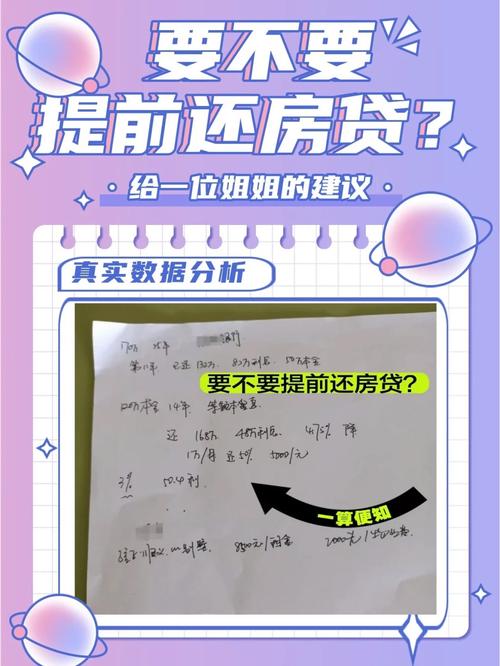 要不要
提前还房贷?
·给一位姐姐的建议·
真实数据分析
170万 25年 银行
第11年 已还132万 82万利息 50万本金
要不要提前还房贷?
120万本金 14年 等额本息
还 168万 48万利息 4.75% 降
1万/月 还50% 5000/元
3% 50.4利
一算便知
8500元/租金 2000元/